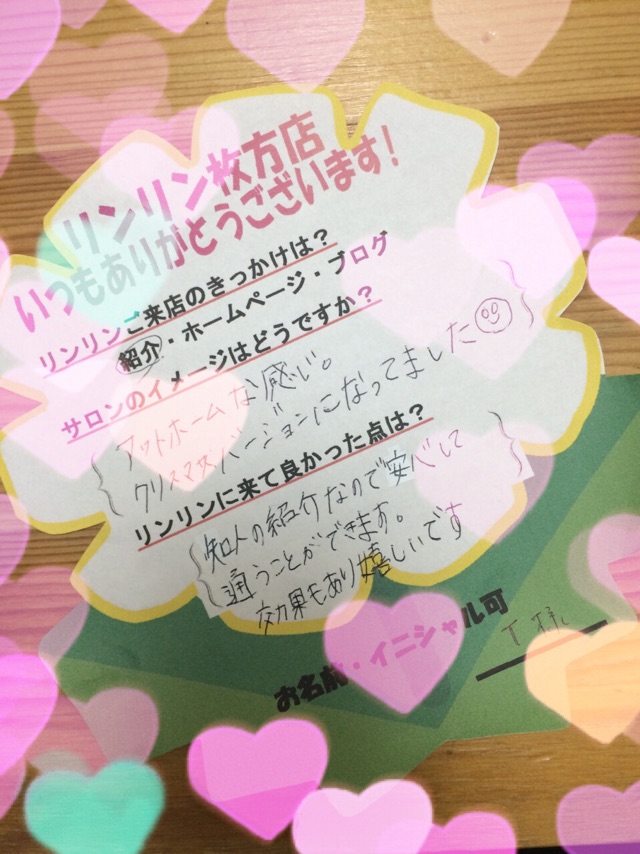 リンリン枚方店
いつもありがとうございます!
リンリンご来店のきっかけは?
紹介・ホームページ・ブログ
サロンのイメージはどうですか?
アットホームな感い。
クリスマスバージョンになってました
リンリンに来て良かった点は?
知人の紹介なので安心して
通うことができます。
効果もあり嬉しいです
お名前・イニシャル可
T 様